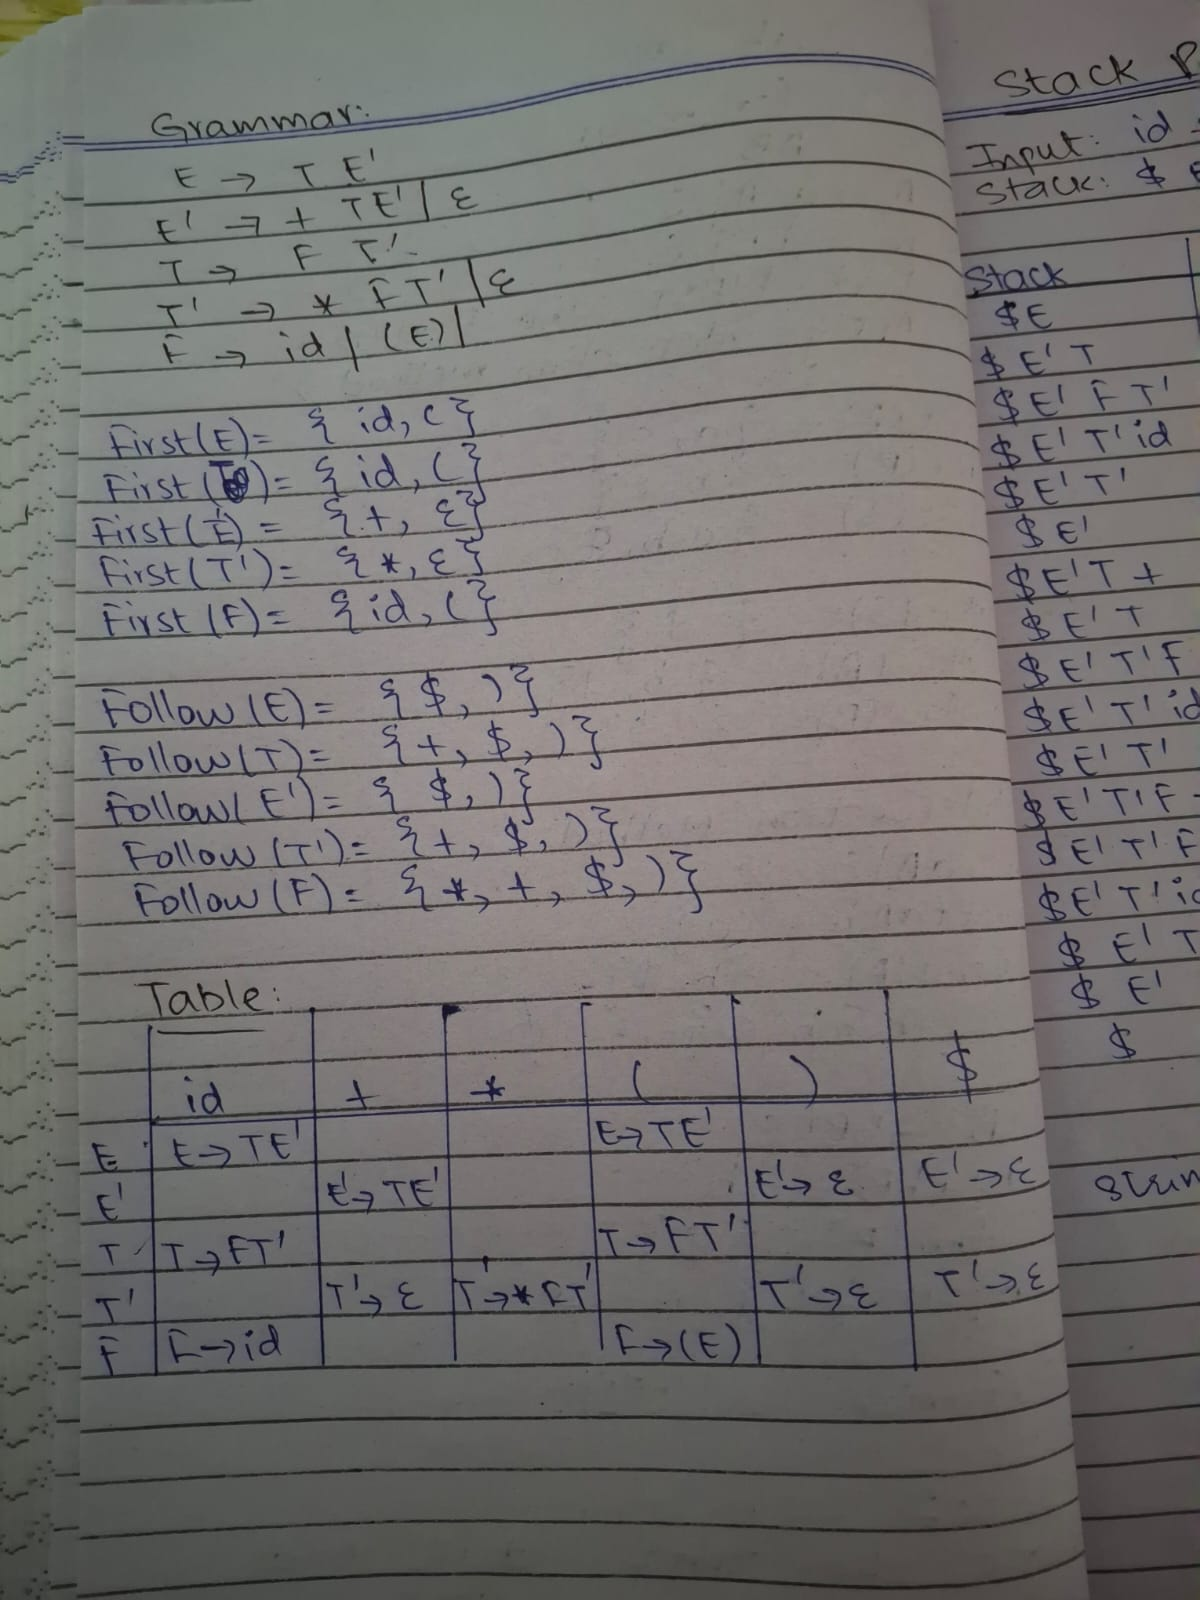 Grammar:
E → T E'
E' → + TE' | ε
T → F T'
T' → * FT' | ε
F → id | (E) |
First(E) = { id, ( }
First(T) = { id, ( }
First(E') = { +, ε }
First(T') = { *, ε }
First (F) = { id, ( }
Follow (E) = { $, ) }
Follow (T) = { +, $, ) }
Follow( E') = { $, ) }
Follow (T') = { +, $, ) }
Follow (F) = { *, +, $, ) }
Table:
id + * ( ) $
E E → TE' E → TE'
E' E' → TE' E' → ε E' → ε
T T → FT' T → FT'
T' T' → ε T' → * FT' T' → ε T' → ε
F F → id F → (E)
Stack
Input: id
Stack: $
Stack
$E
$ E' T
$ E' F T'
$ E' T' id
$ E' T'
$ E'
$ E' T +
$ E' T
$ E' T' F
$ E' T' id
$ E' T'
$ E' T' F
$ E' T' F
$ E' T'
$ E' T
$ E'
$